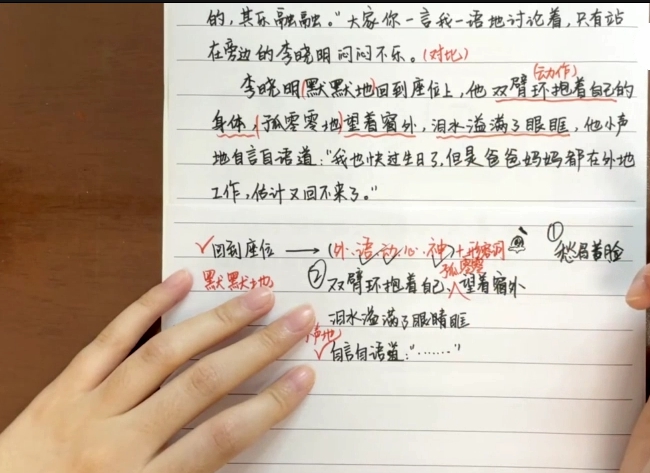 的，其乐融融。"大家你一言我一语地讨论着，只有站
在旁边的李晓明闷闷不乐。(对比)
(动作)
李晓明(默默地)回到座位上，他双臂环抱着自己的
身体，(孤零零地)望着窗外，泪水溢满了眼眶，他小声
地自言自语道："我也快过生日了，但是爸爸妈妈都在外地
工作，估计又回不来了。"
①
✓回到座位 → (外、语、动、心、神)+形容词 愁眉苦脸
默默地
孤零零
②双臂环抱着自己，望着窗外
泪水溢满了眼睛眶
声地
✓自言自语道："……"